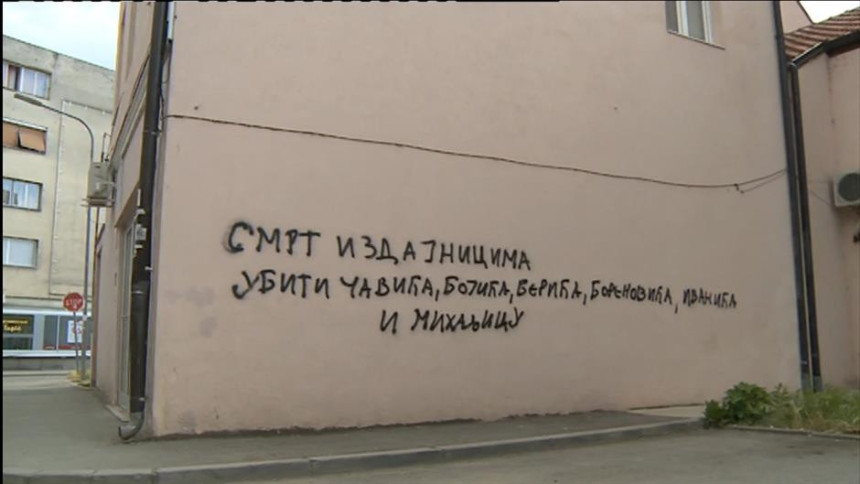 СМРТ ИЗДАЈНИЦИМА
УБИТИ ЧАВИЋА, БОЈИЋА, ВЕРИЋА, БОРЕНОВИЋА, ИВАНИЋА
И МИХАЉИЦУ
STOP